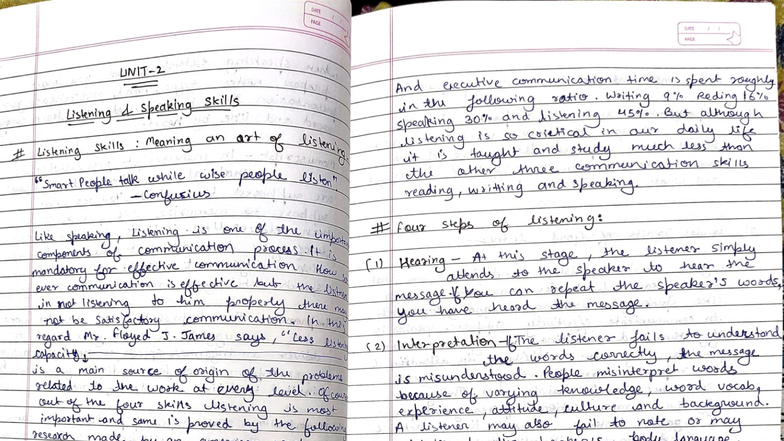 DATE
PAGE
UNIT-2
Listening & Speaking Skills
# Listening Skills : Meaning an art of listening
"Smart People talk while wise people listen"
- Confusius
Like speaking, Listening is one of the
components of communication process. It is
mandatory for effective communication. How
ever communication is effective but the
in not listening to him properly there may
not be satisfactory communication. In this
regard Mr. Floyed J. James says, "Less
capacity
is a main source of origin of the problems
related to the work at every level.
out of the four skills listening is most
important and same is proved by the following
research made by an
DATE
PAGE
And executive communication time is spent roughly
in the following ratio. Writing 9% Reding 16%
speaking 30% and listening 45%. But although
listening is so crietical in our daily life
it is taught and study much less than
the other three communication skills
reading, writing and speaking.
# Four steps of listening:
(1) Hearing - At this stage, the listener simply
attends to the speaker to hear the
message. If you can repeat the speaker's words,
you have heard the message.
(2) Interpretation - If The listener fails to understand
the words correctly, the message
is misunderstood. People misinterpret words
because of varying knowledge, word vocab,
experience, attitude, culture and background.
A listener may also fail to note or may
body language